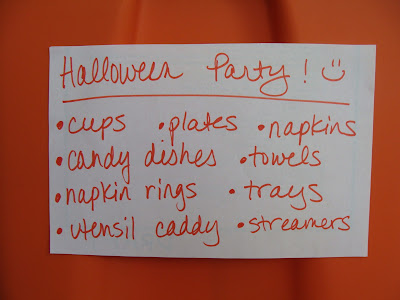 Halloween Party! ☺
•cups •plates •napkins
•candy dishes •towels
•napkin rings •trays
•utensil caddy •streamers